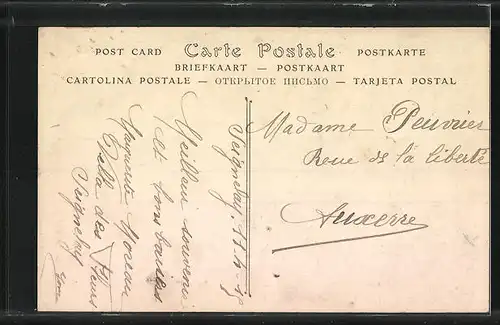 POST CARD Carte Postale POSTKARTE
BRIEFKAART — POSTKAART
CARTOLINA POSTALE — ОТКРЫТОЕ ПИСЬМО — TARJETA POSTAL
Seignelay,
Meilleurs souvenirs
et bons baisers
Moreau
Villa des Fleurs
Seignelay
Madame Peuvrier
Rue de la liberté
Auxerre